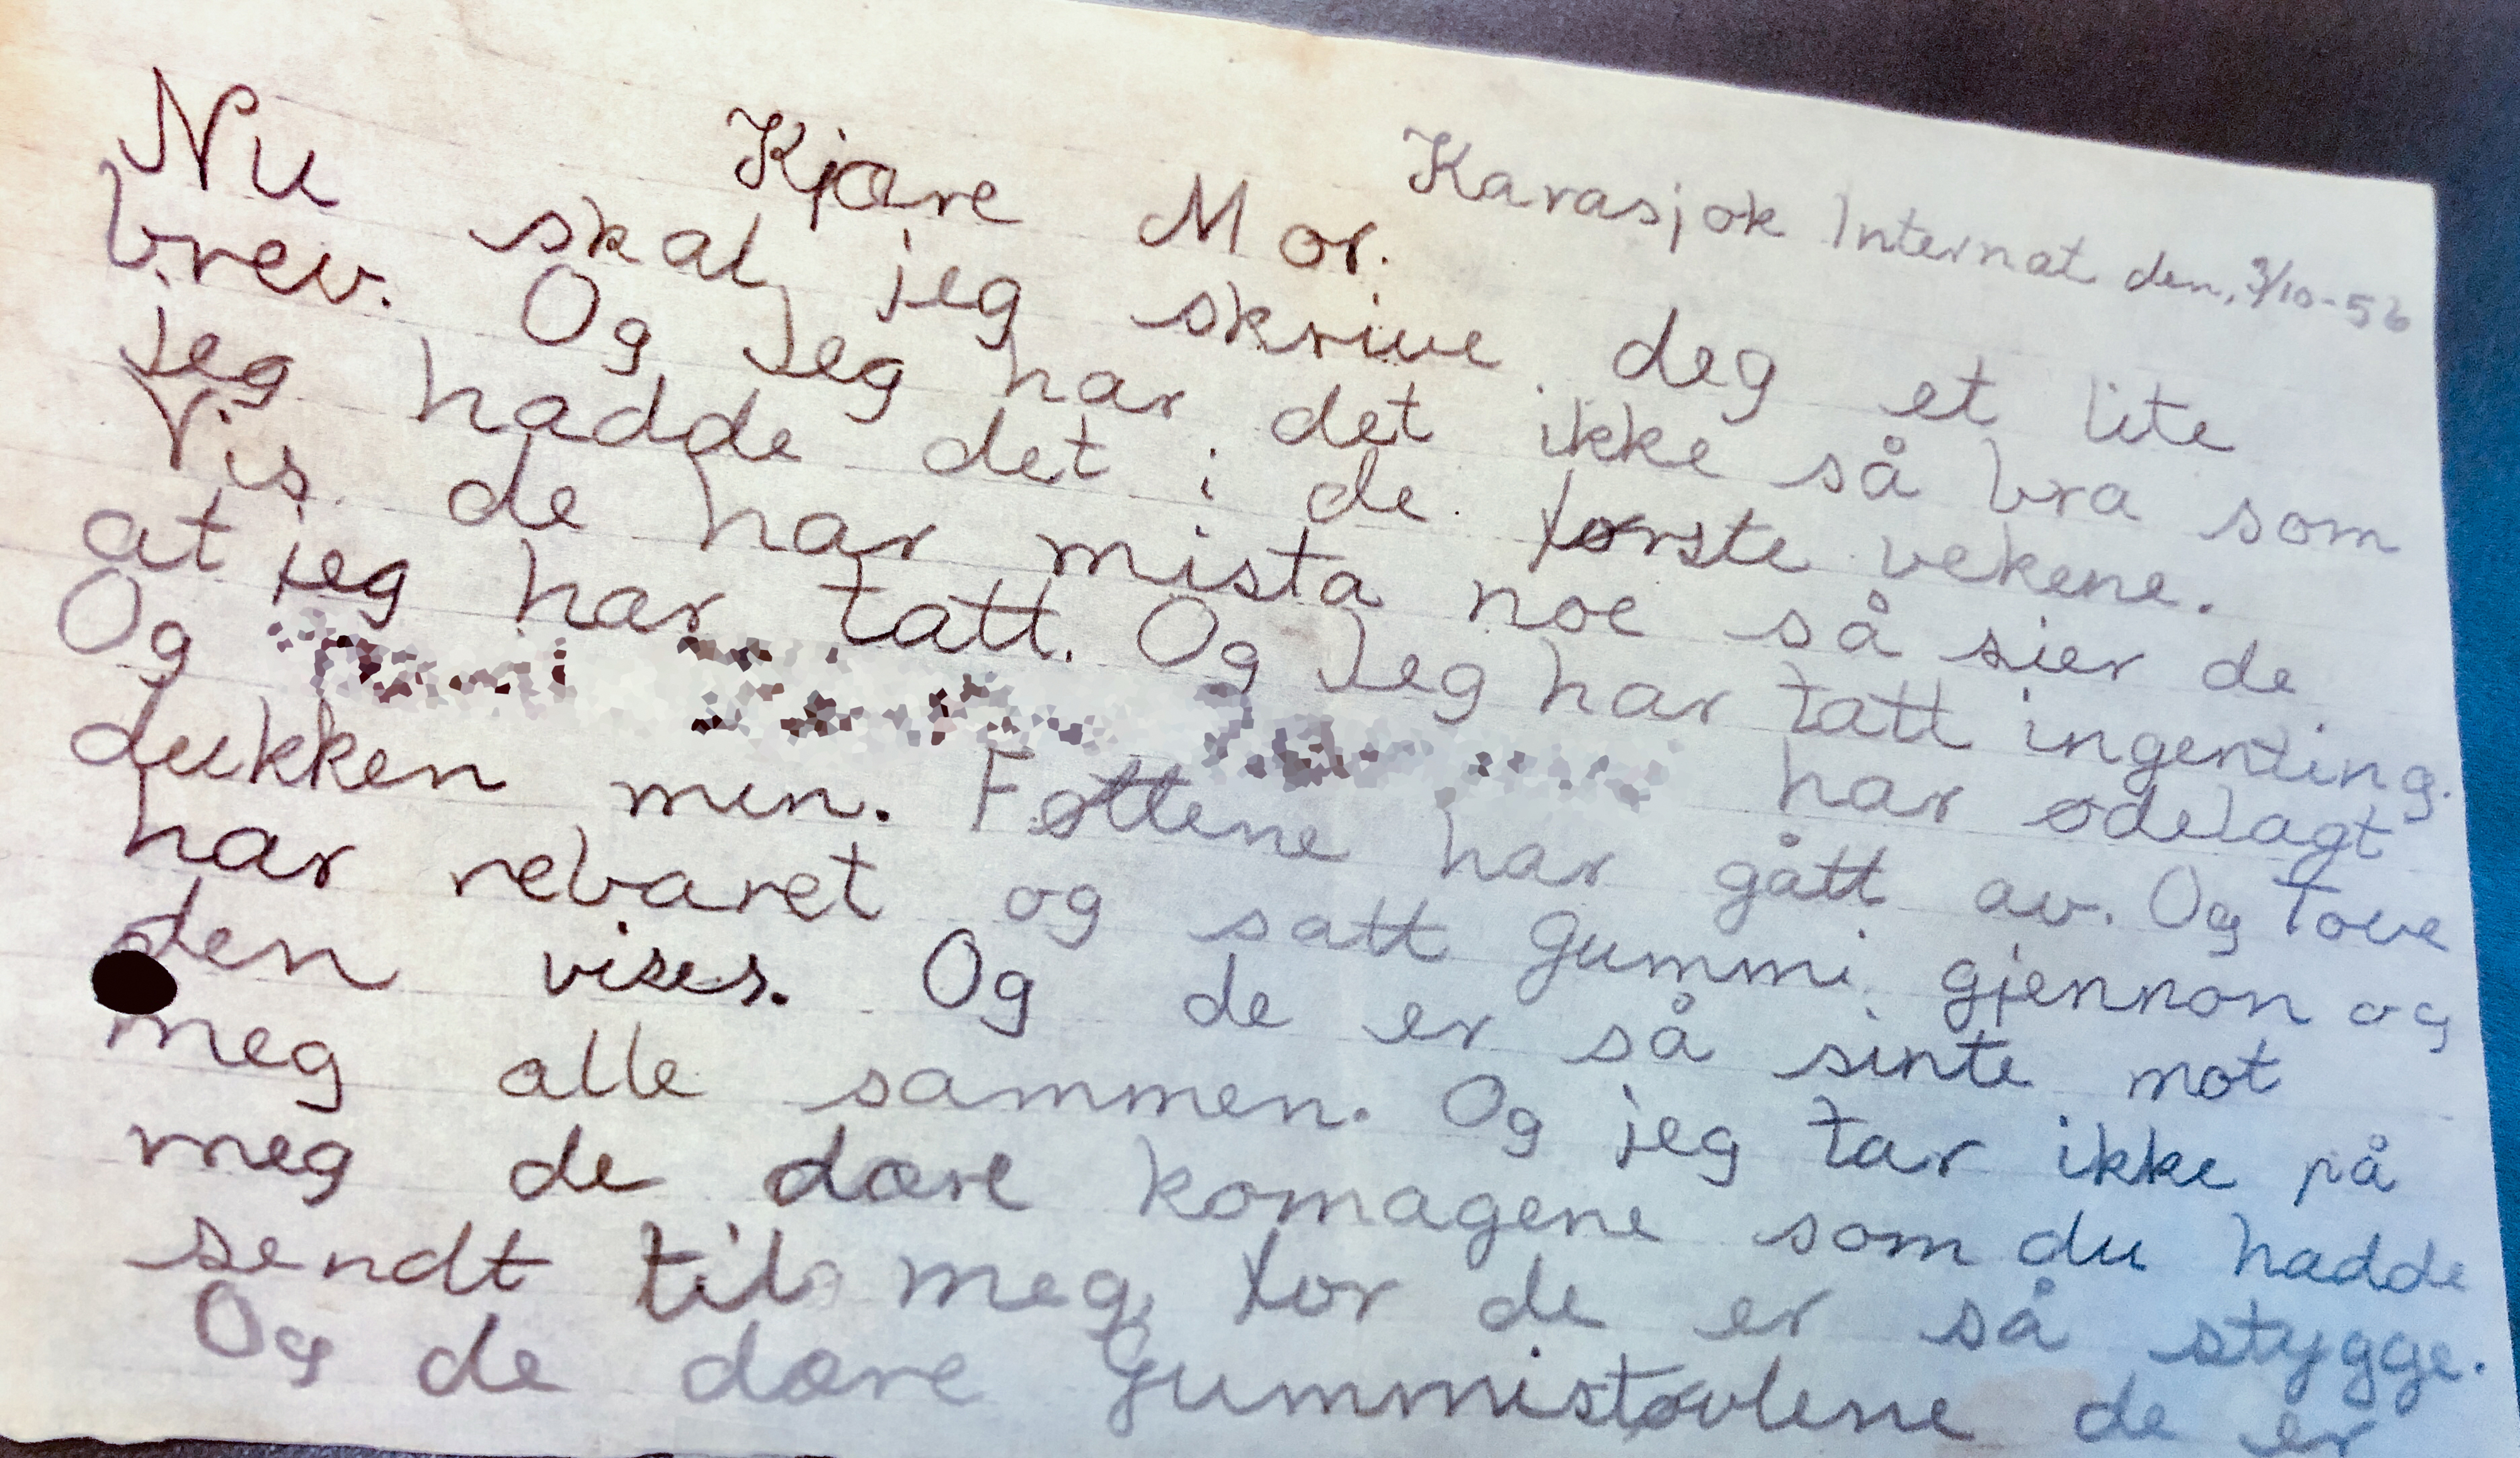 Karasjok Internat den, 3/10-56
Kjære Mor.
Nu skal jeg skrive deg et lite
brev. Og Jeg har det ikke så bra som
jeg hadde det i de første vekene.
Vis de har mista noe så sier de
at jeg har tatt. Og Jeg har tatt ingenting.
Og har ødelagt
dukken min. Føttene har gått av. Og Tove
har rebaret og satt gummi gjennon og
den vises. Og de er så sinte mot
meg alle sammen. Og jeg tar ikke på
meg de dære komagene som du hadde
sendt til meg for de er så stygge.
Og de dære gummistøvlene de er